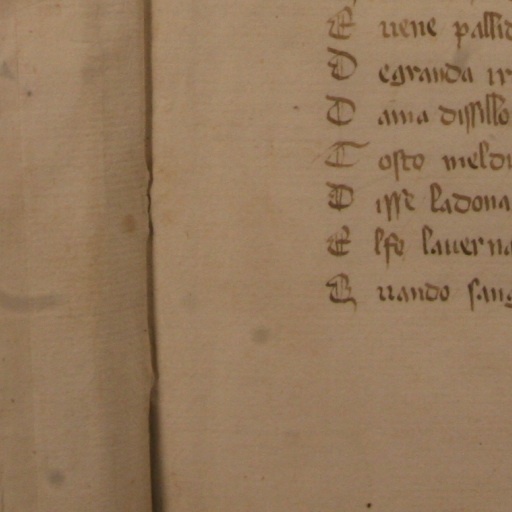 E uene pallid
D egranda ir
D ama dissillo
T osto meldi
D isse ladona
E lfe lauerna
G uando sang